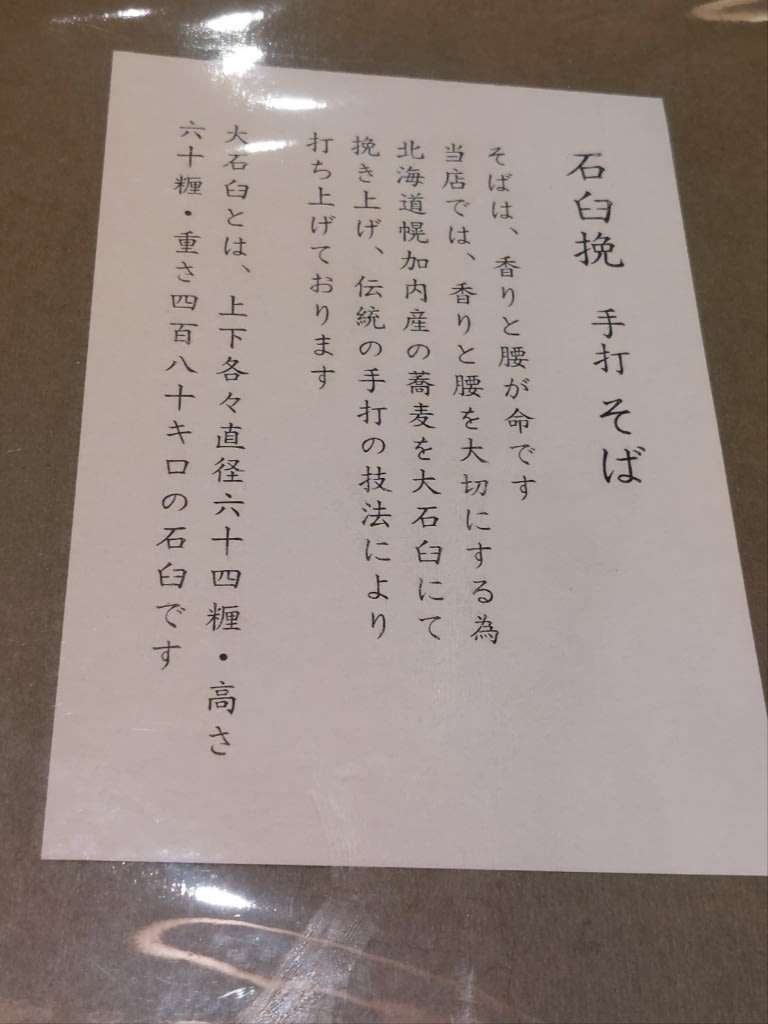 石臼挽 手打 そば
そばは、香りと腰が命です
当店では、香りと腰を大切にする為
北海道幌加内産の蕎麦を大石臼にて
挽き上げ、伝統の手打の技法により
打ち上げております
大石臼とは、上下各々直径六十四糎・高さ
六十糎・重さ四百八十キロの石臼です